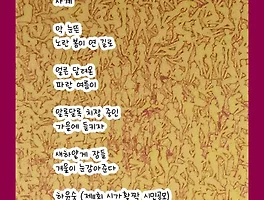 사계
막 눈뜬
노란 봄이 연 길로
얼른 달려온
파란 여름이
알록달록 치장 중인
가을에 들키자
새하얗게 잠든
겨울이 눈감아준다
허윤숙 (제8회 시가활짝 시민공모)